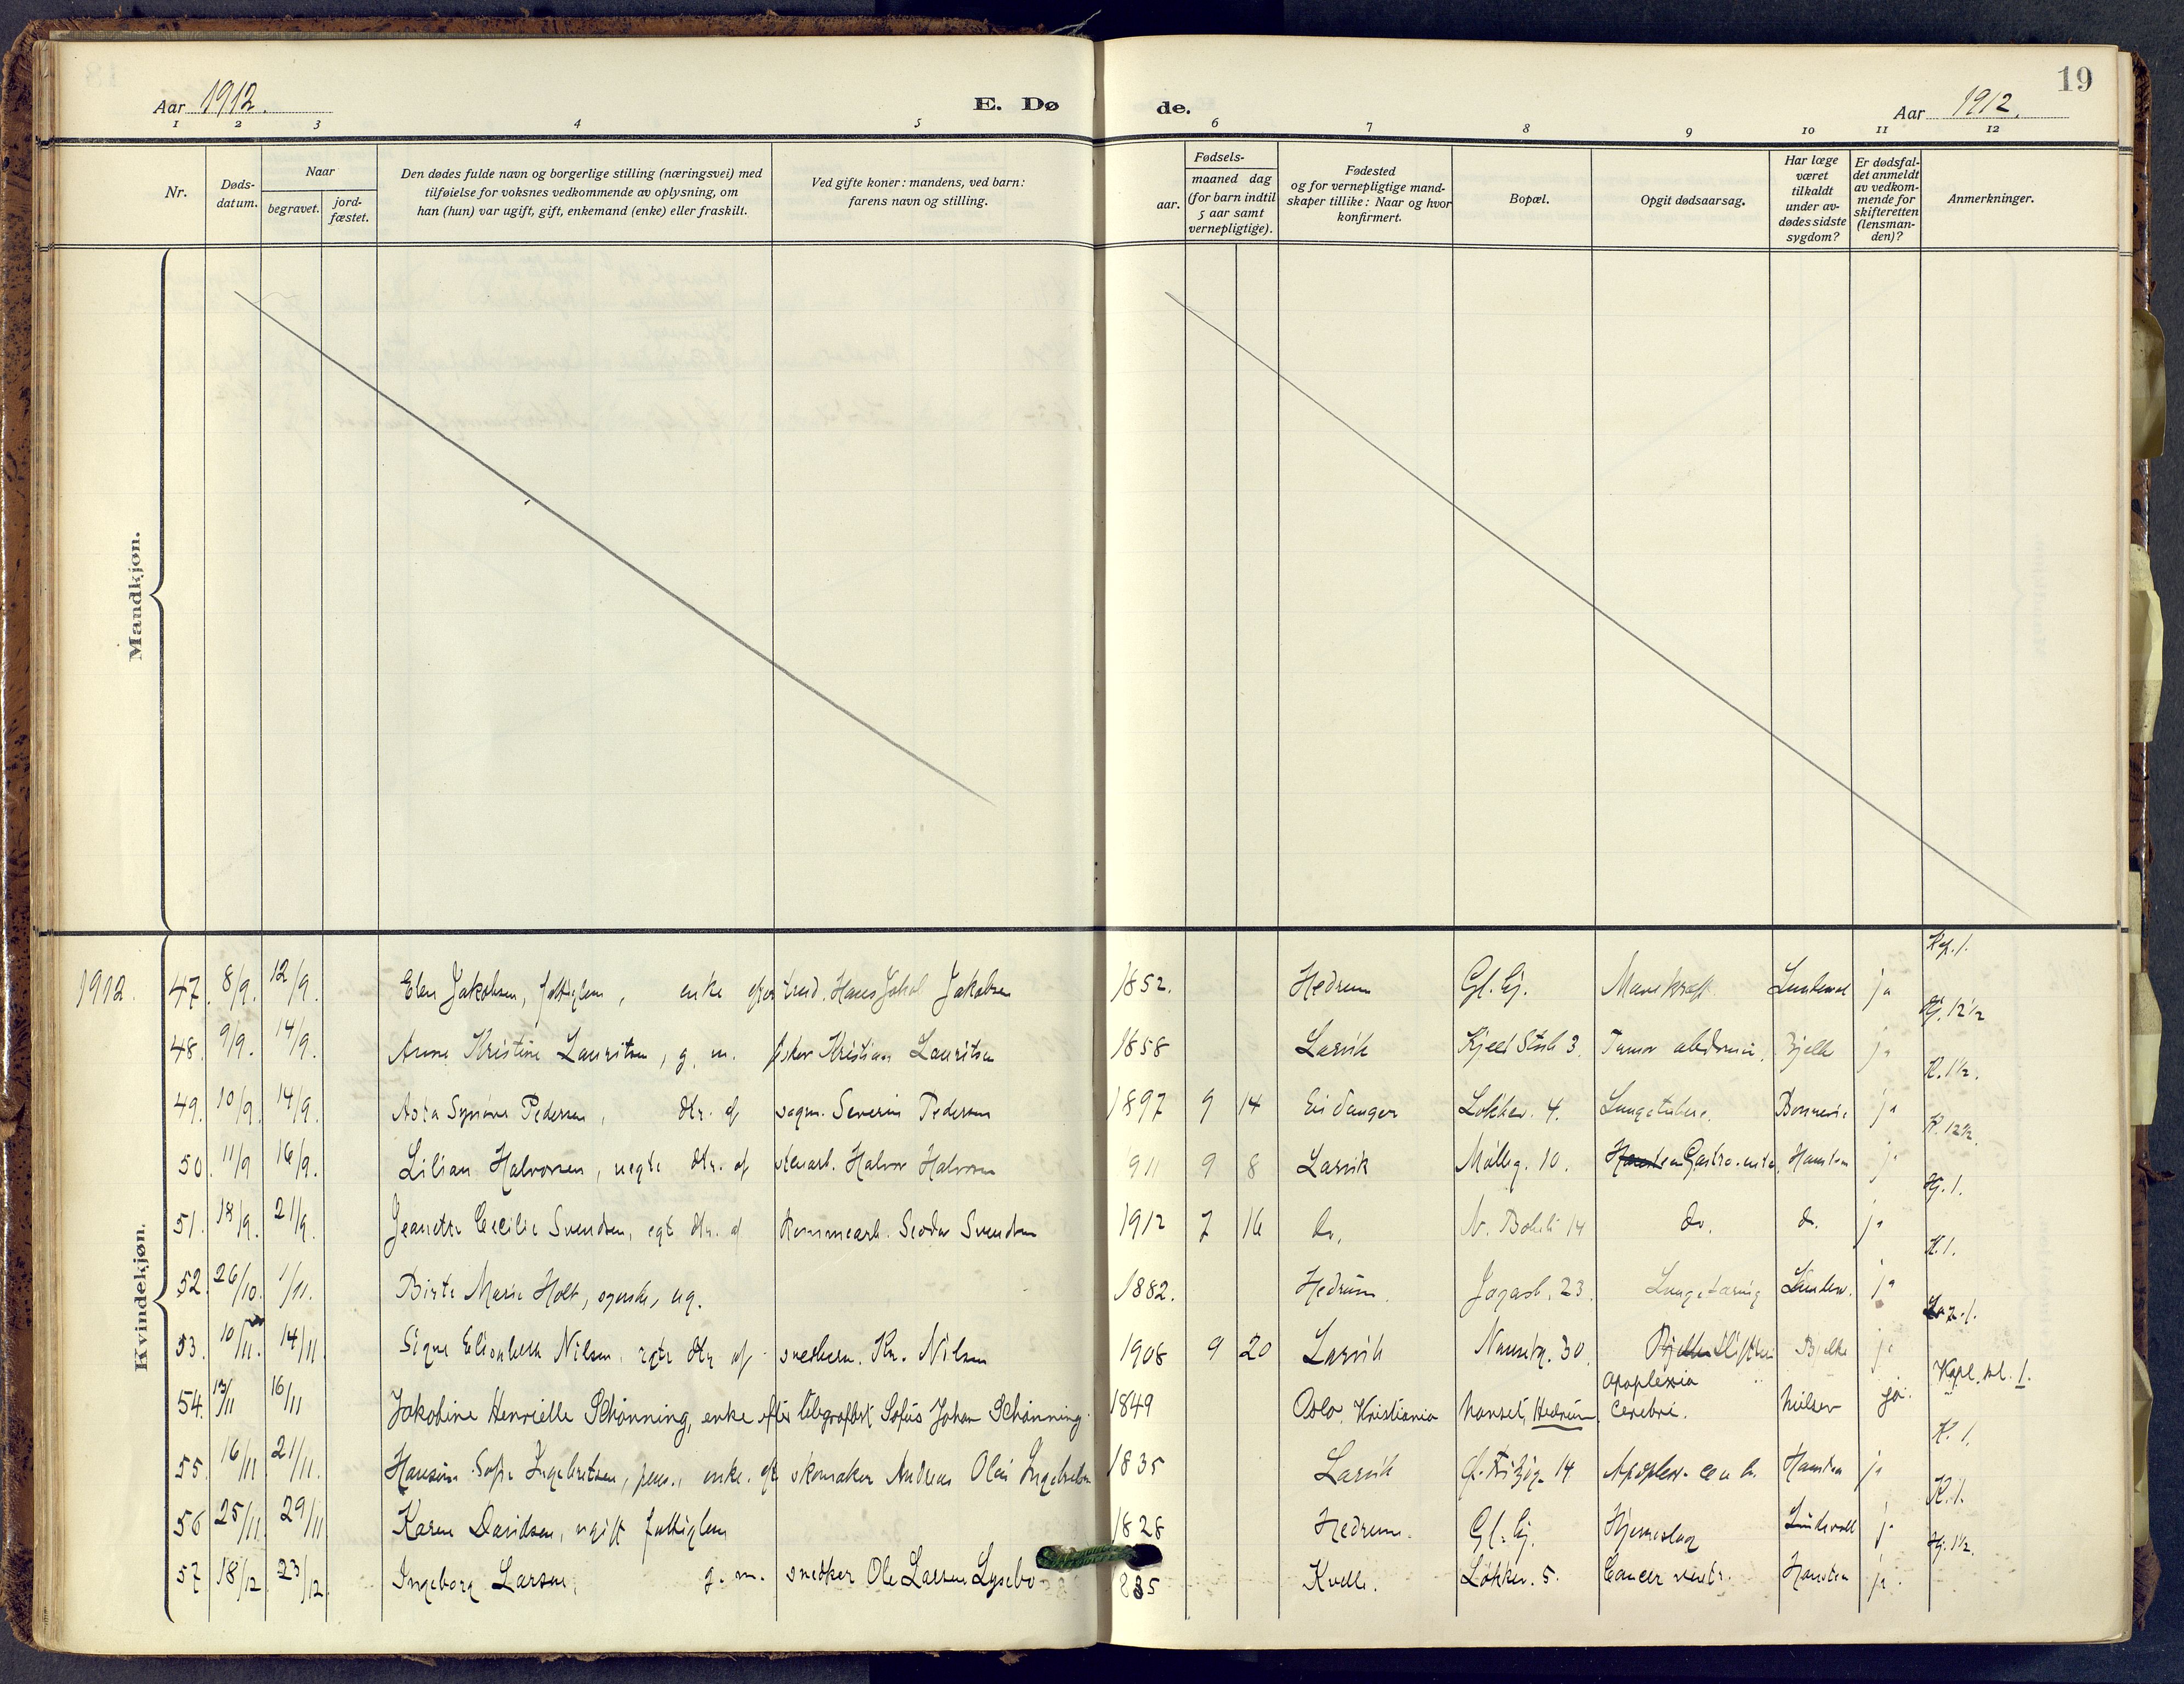 19
Aar 1912.
E. Dø de.
Aar 1912.
1 2 3 4 5 6 7 8 9 10 11 12
Nr.
Døds-
datum.
Naar
begravet.
jord-
fæstet.
Den dødes fulde navn og borgerlige stilling (næringsvei) med
tilføielse for voksnes vedkommende av oplysning, om
han (hun) var ugift, gift, enkemand (enke) eller fraskilt.
Ved gifte koner: mandens, ved barn:
farens navn og stilling.
Fødsels-
aar.
maaned dag
(for barn indtil
5 aar samt
vernepligtige).
Fødested
og for vernepligtige mand-
skaper tillike: Naar og hvor
konfirmert.
Bopæl.
Opgit dødsaarsag.
Har læge
været
tilkaldt
under av-
dødes sidste
sygdom?
Er dødsfal-
det anmeldt
av vedkom-
mende for
skifteretten
(lensman-
den)?
Anmerkninger.
Mandkjøn.
Kvindekjøn.
1912. 47. 8/9. 12/9. Elen Jakobsen, fattiglem, enke efter Hans Jakob Jakobsen 1852. Hedrum Gl. Gj. Mavekræft ja
48. 9/9. 14/9. Anne Kristine Lauritsen, g. m. fisker Kristian Lauritsen 1858 Larvik 3. Tumor Bjelke ja Hj. 12½
49. 10/9. 14/9. Asta Synøve Pedersen, dtr. af sagm. Severin Pedersen 1897 9 14 Eidanger Løkkev. 4. Lungetuberc. ja K. 1½.
50. 11/9 16/9. Lilian Halvorsen, uegte dtr. af stenarb. Halvor Halvorsen 1911 9 8 Larvik Mølleg. 10. Gastro-ente. Hansten ja K. 12½.
51. 18/9. 21/9. Jeanette Cecilie Svendsen, egte dtr. af Svendsen 1912 7 16 do. 14 do. do. ja Hj. 1.
52. 26/10. 1/11. Birte Marie Holt, syerske, ug. 1882. Hedrum. 23 Lungetæring ja K. 1.
53. 10/11. 14/11 Signe Elisabeth Nilsen, egte dtr af snedkerm. Kr. Nilsen 1908 9 20 Larvik Nansetg. 30. Difteri Bjelke ja
54. 13/11 16/11 Jakobine Henriette Schønning, enke efter telegrafbest. Sofus Johan Schønning. 1849 Oslo, Kristiania Nanset, Hedrum apoplexia cerebri. Nielsen ja. Kapl. kl. 1.
55. 16/11 21/11. Sofie Ingebretsen, pens., enke eft skomaker Andreas Olai Ingebretsen 1835 Larvik 14 Apoplex. Hansten ja K. 1.
56 25/11 29/11 Karen Davidsen, ugift fattiglem 1828 Hedrum. Gl. Gj. Hjerneslag ja K. 1.
57 18/12 23/12. Ingeborg Larsen, g. m. snedker Ole Larsen Lysebo 1835 Kvelle. Løkkev. 5. Cancer ventr. Hansten ja. Hj. 1½.